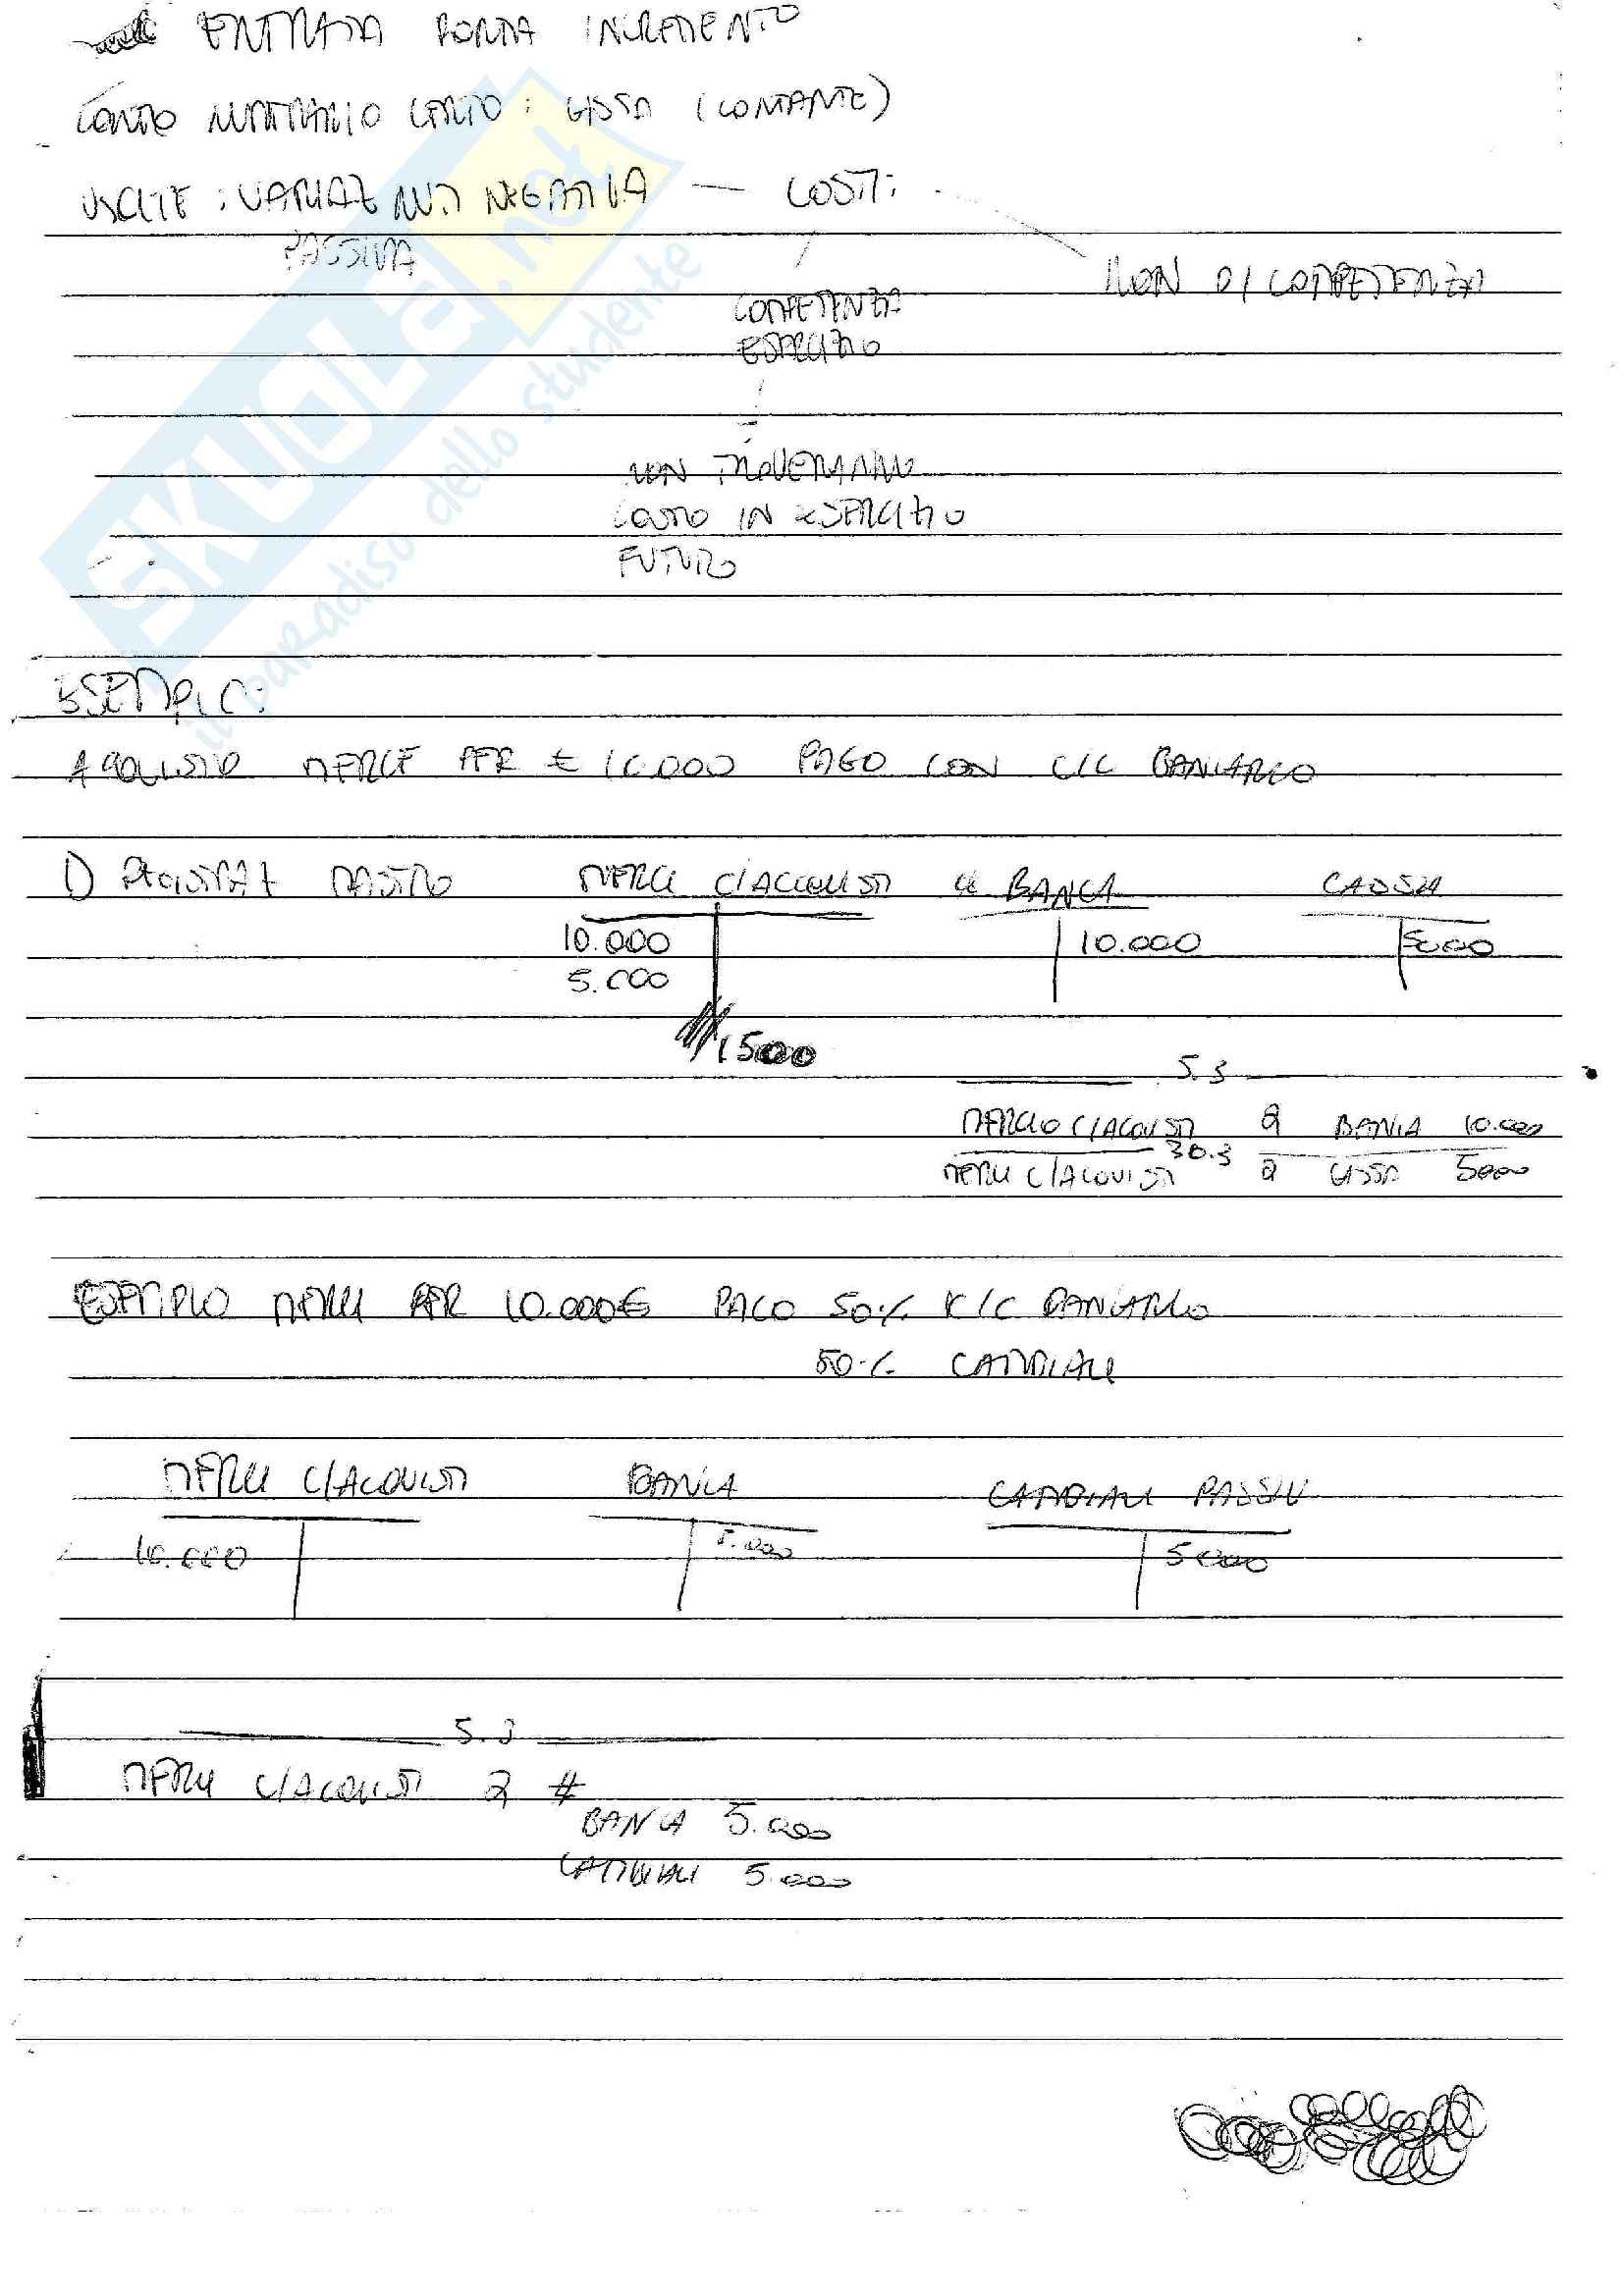 ENTRATA PORTA INCREMENTO
CONTO NUMERARIO CERTO: CASSA (CONTANTE)
USCITE: VARIAZ NUM NEGATIVA — COSTI:
PASSIVA
NON DI COMPETENZA
COMPETENZA
ESERCIZIO
NON TROVERANNO
COSTO IN ESERCIZIO
FUTURO
ESEMPIO:
ACQUISTO MERCE PER € 10.000 PAGO CON C/C BANCARIO
1) REGISTRAZ MASTRO MERCI C/ACQUISTI BANCA CASSA
10.000 10.000 5000
5.000
15000
5.3
MERCI C/ACQUISTI a BANCA 10.000
30.3
MERCI C/ACQUISTI a CASSA 5000
ESEMPIO MERCI PER 10.000€ PAGO 50% C/C BANCARIO
50% CAMBIALI
MERCI C/ACQUISTI BANCA CAMBIALI PASSIVE
10.000 5.000 5000
5.3
MERCI C/ACQUISTI a #
BANCA 5.000
CAMBIALI 5.000
SKUOLA.net
il paradiso dello studente